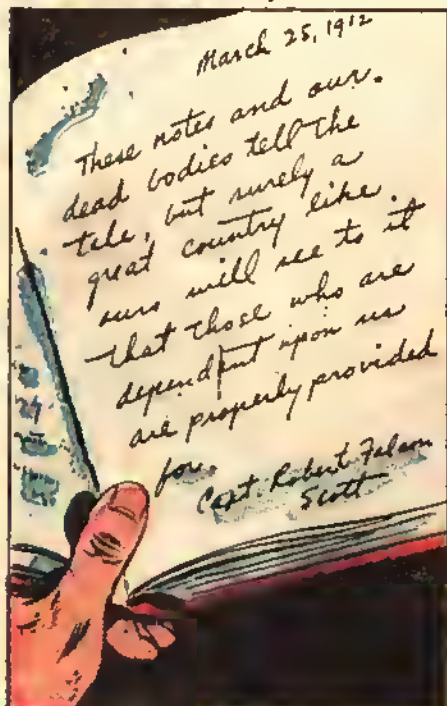 March 25, 1912
These notes and our
dead bodies tell the
tale, but surely a
great country like
ours will see to it
that those who are
dependent upon us
are properly provided
for.
Capt. Robert Falson
Scott